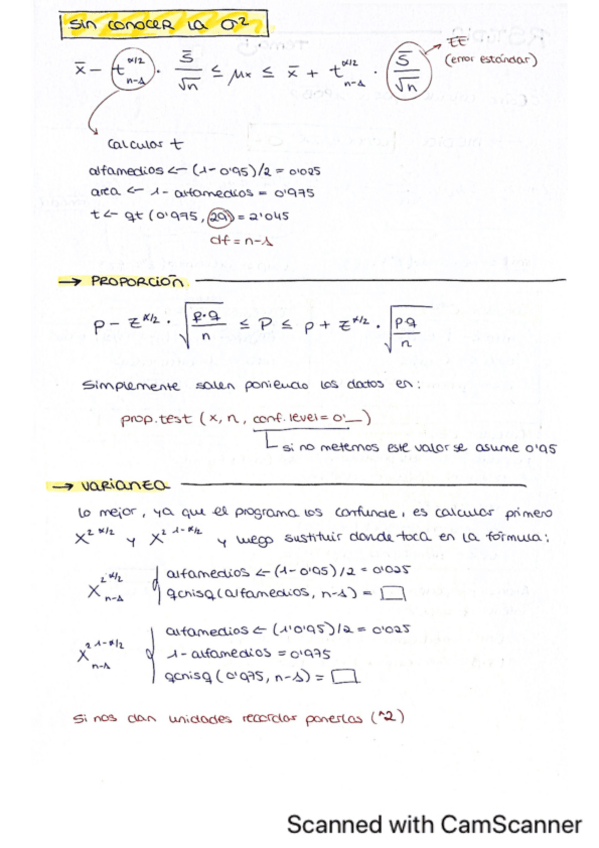 Sin conocer la σ²
x̄ - t^α/2 n-1 · S̄/√n ≤ μx ≤ x̄ + t^α/2 n-1 · S̄/√n → EE (error estándar)
Calcular t
alfamedios <- (1-0'95)/2 = 0'025
area <- 1-alfamedios = 0'975
t <- qt (0'975, 29) = 2'045
df = n-1
→ PROPORCIÓN
p - z^α/2 · √(p·q/n) ≤ P ≤ p + z^α/2 · √(pq/n)
Simplemente salen poniendo los datos en:
prop.test (x, n, conf.level = 0'_)
si no metemos este valor se asume 0'95
→ VARIANZA
Lo mejor, ya que el programa los confunde, es calcular primero
X² α/2 y X² 1-α/2 y luego sustituir donde toca en la fórmula:
X² α/2 n-1
alfamedios <- (1-0'95)/2 = 0'025
qchisq(alfamedios, n-1) = □
X² 1-α/2 n-1
alfamedios <- (1'0'95)/2 = 0'025
1-alfamedios = 0'975
qchisq (0'975, n-1) = □
Si nos dan unidades recordar ponerlas (^2)
Scanned with CamScanner